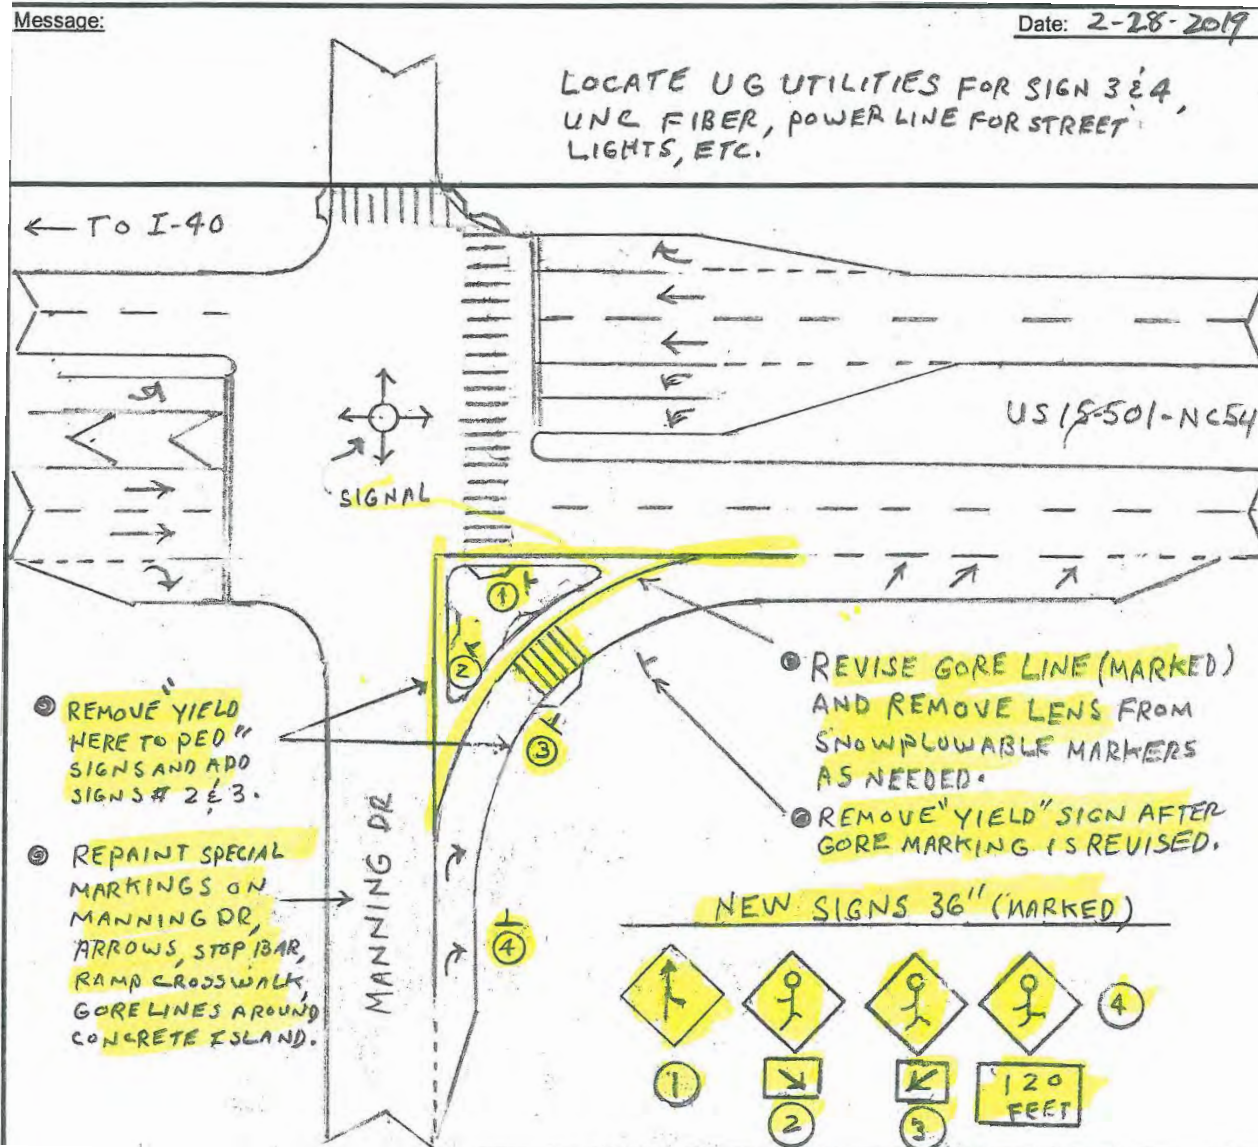 Message:
Date: 2-28-2019
LOCATE UG UTILITIES FOR SIGN 3 & 4,
UNC FIBER, POWER LINE FOR STREET
LIGHTS, ETC.
← TO I-40
US 15-501-NC54
SIGNAL
1
2
3
4
MANNING DR
● REMOVE "YIELD
HERE TO PED"
SIGNS AND ADD
SIGNS # 2 & 3.
● REPAINT SPECIAL
MARKINGS ON
MANNING DR,
ARROWS, STOP BAR,
RAMP CROSSWALK,
GORE LINES AROUND
CONCRETE ISLAND.
● REVISE GORE LINE (MARKED)
AND REMOVE LENS FROM
SNOWPLOWABLE MARKERS
AS NEEDED.
● REMOVE "YIELD" SIGN AFTER
GORE MARKING IS REVISED.
NEW SIGNS 36" (MARKED)
1
2
3
4
120
FEET